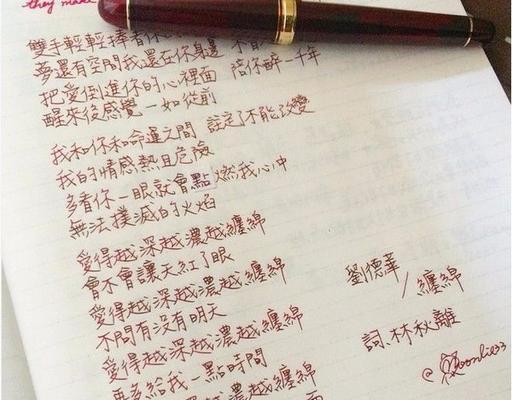 they make
雙手輕輕捧著你
夢還有空間我還在你身邊 不曾
把愛倒進你的心裡面 陪你醉一千年
醒來後感覺一如從前
我和你和命運之間 註定了不能改變
我的情感熱且危險
多看你一眼就會點燃我心中
無法撲滅的火焰
愛得越深越濃越纏綿
會不會讓天紅了眼
愛得越深越濃越纏綿
不問有沒有明天
愛得越深越濃越纏綿
再多給我一點時間
越濃越纏綿
劉德華
/ 纏綿
詞、林秋離